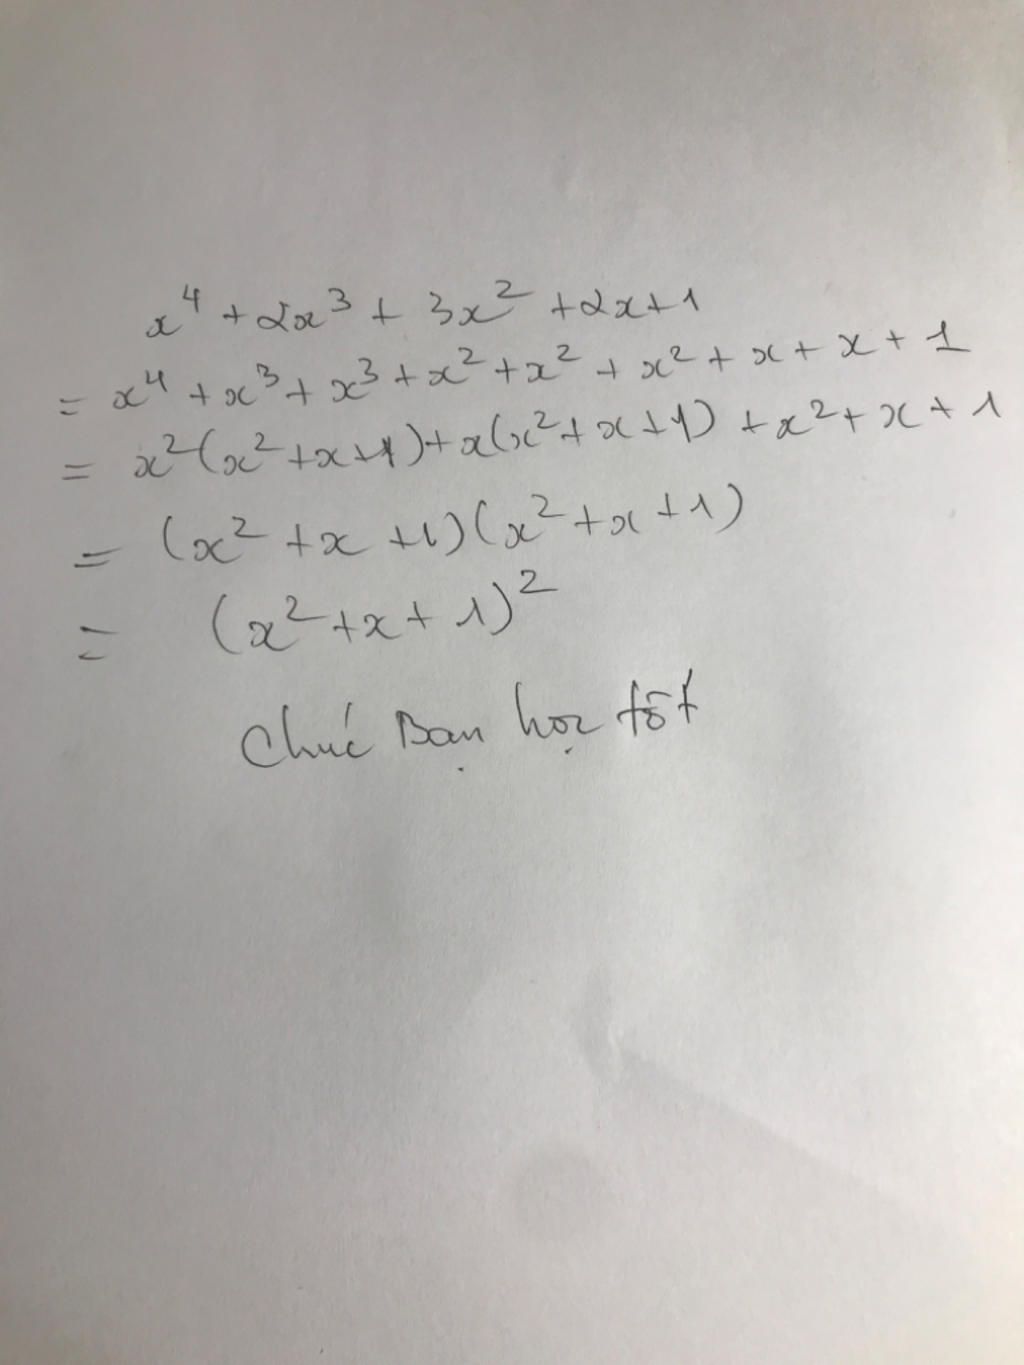 x⁴ + 2x³ + 3x² + 2x + 1
= x⁴ + x³ + x³ + x² + x² + x² + x + x + 1
= x²(x² + x + 1) + x(x² + x + 1) + x² + x + 1
= (x² + x + 1)(x² + x + 1)
= (x² + x + 1)²
Chúc Bạn học tốt